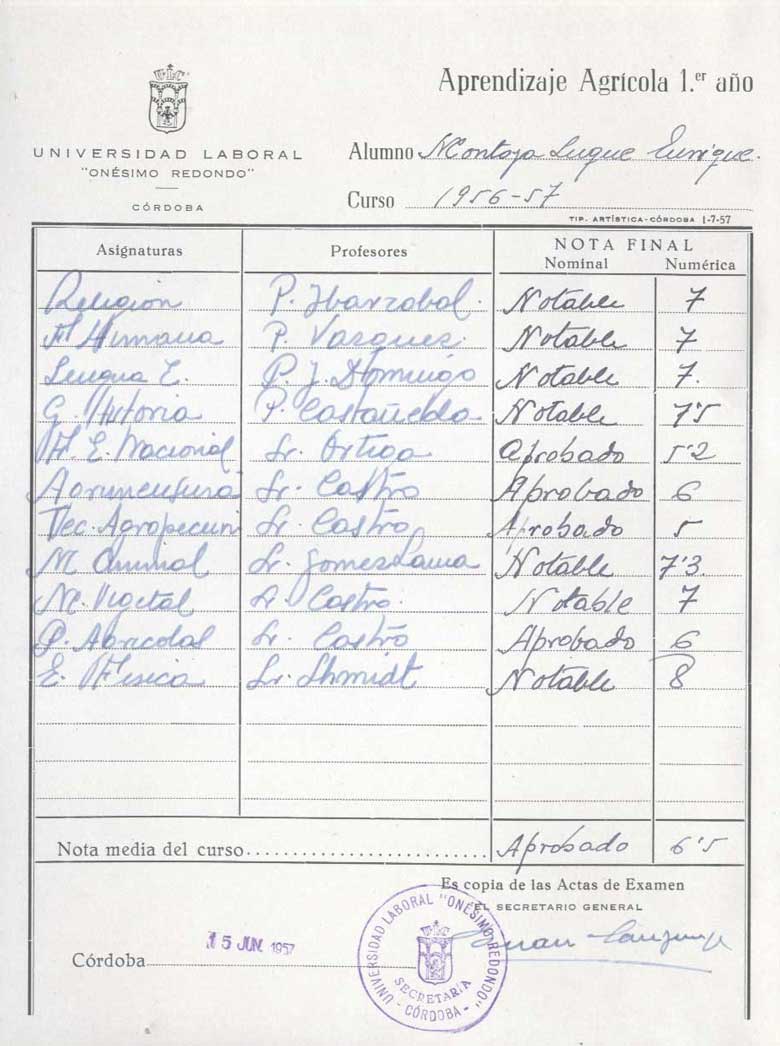 Aprendizaje Agrícola 1.er año
ULC
UNIVERSIDAD LABORAL
"ONÉSIMO REDONDO"
CÓRDOBA
Alumno Montoya Luque Enrique.
Curso 1956-57
TIP. ARTÍSTICA-CÓRDOBA 1-7-57
Asignaturas Profesores NOTA FINAL
Nominal Numérica
Religión P. Ibarzabal. Notable 7
F. Humana P. Vazquez. Notable 7
Lengua E. P. J. Domingo Notable 7.
G. Historia P. Castañeda Notable 7'5
F. E. Nacional Sr. Ortiga Aprobado 5'2
Agrimensura Sr. Castro Aprobado 6
Tec. Agropecuri Sr. Castro Aprobado 5
M. Animal Sr. Gomez Lama Notable 7'3.
M. Vegetal Sr. Castro. Notable 7
P. Agricolas Sr. Castro Aprobado 6
E. Fisica Sr. Shmidt Notable 8
Nota media del curso Aprobado 6'5
Es copia de las Actas de Examen
EL SECRETARIO GENERAL
Córdoba 15 JUN. 1957
UNIVERSIDAD LABORAL "ONÉSIMO REDONDO"
SECRETARÍA
- CÓRDOBA -